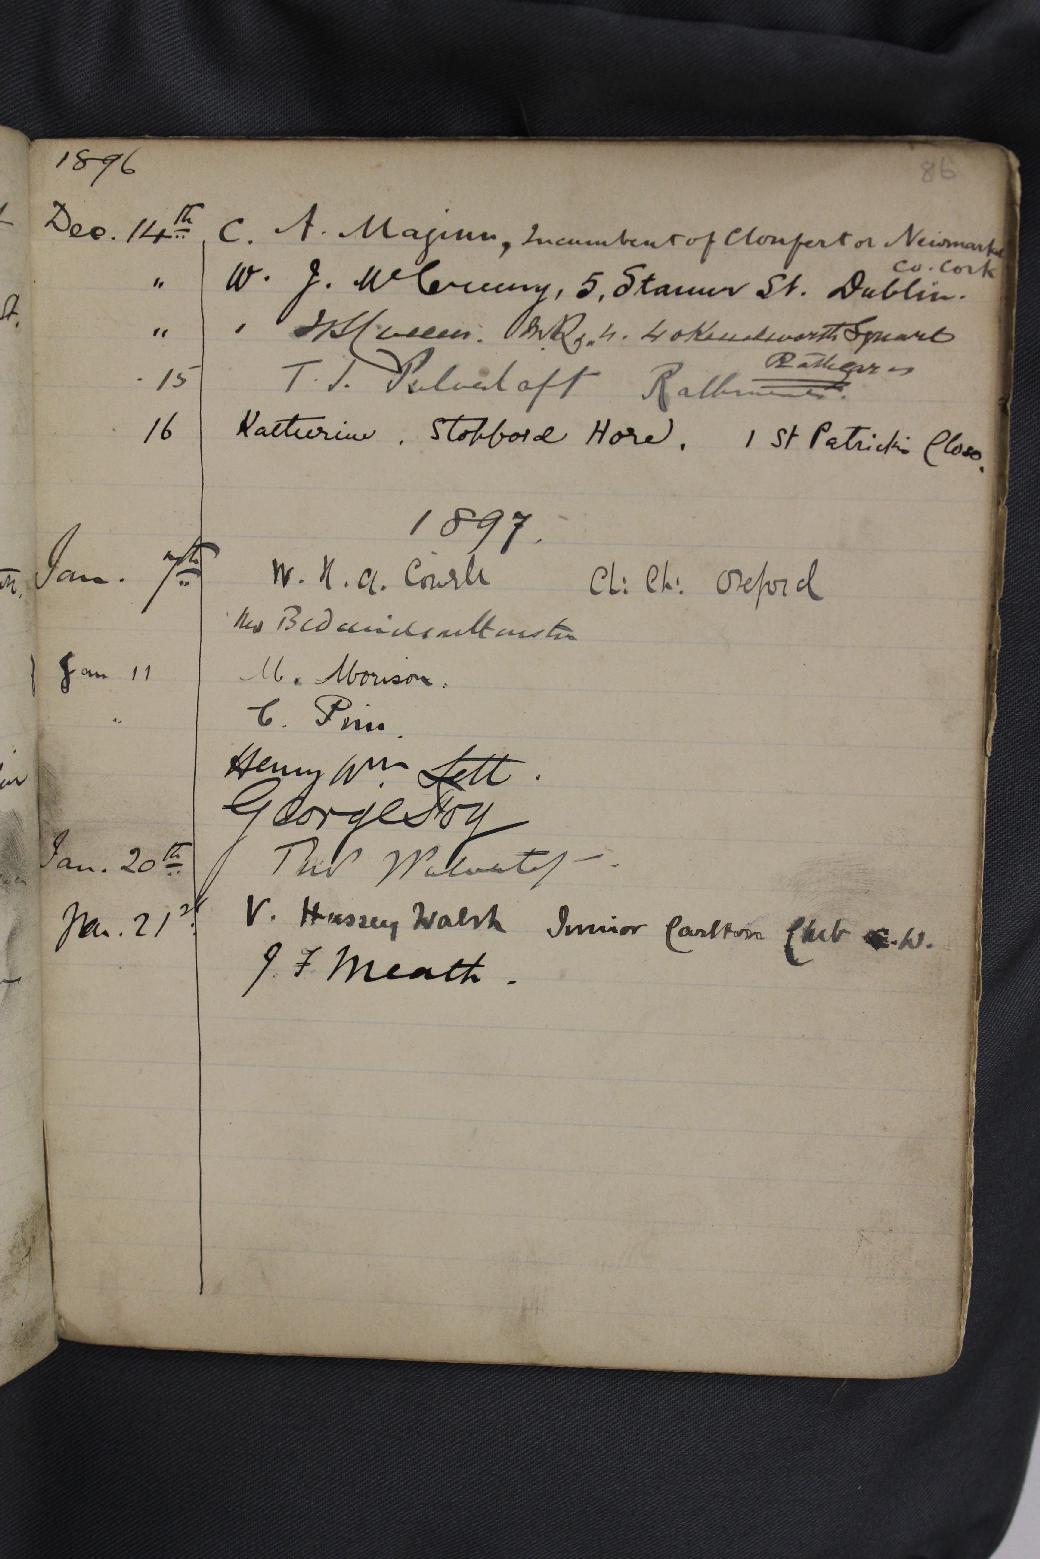 86
1896
Dec. 14th C. A. Maginn, Incumbent of Clonfert or Newmarket
Co. Cork
" W. J. McCreery, 5, Stamer St. Dublin.
" 40 Kenilworth Square
Rathgar
15 T. J. Pulvertaft Rathmines.
16 Katherine. Stopford Hore. 1 St Patrick's Close.
1897.
Jan. 7th W. H. A. Ch: Ch: Oxford
Jan 11 M. Morison.
" C. Pim.
Henry Wm Lett.
George Foy
Jan. 20th Thos
Jan. 21st V. Hussey Walsh Junior Carlton Club S.W.
J F Meath.